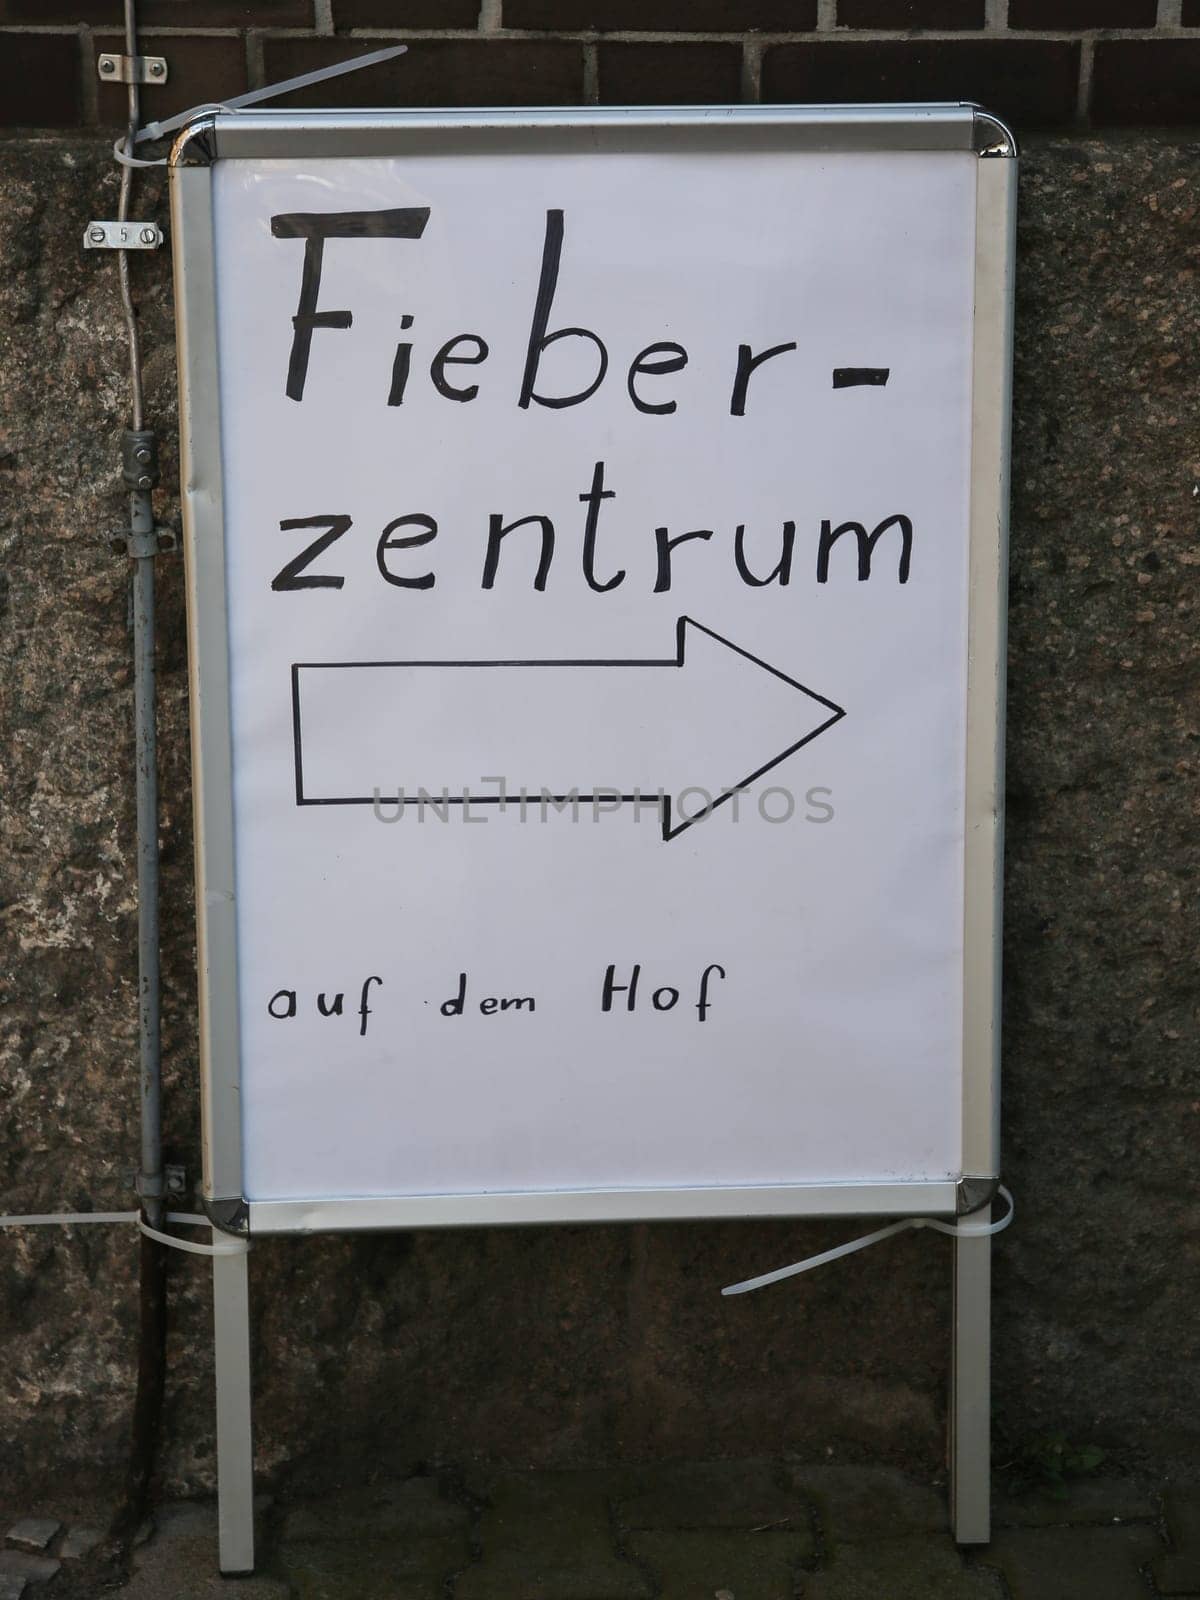 Fieber-
zentrum
auf dem Hof
UNLIMPHOTOS
5